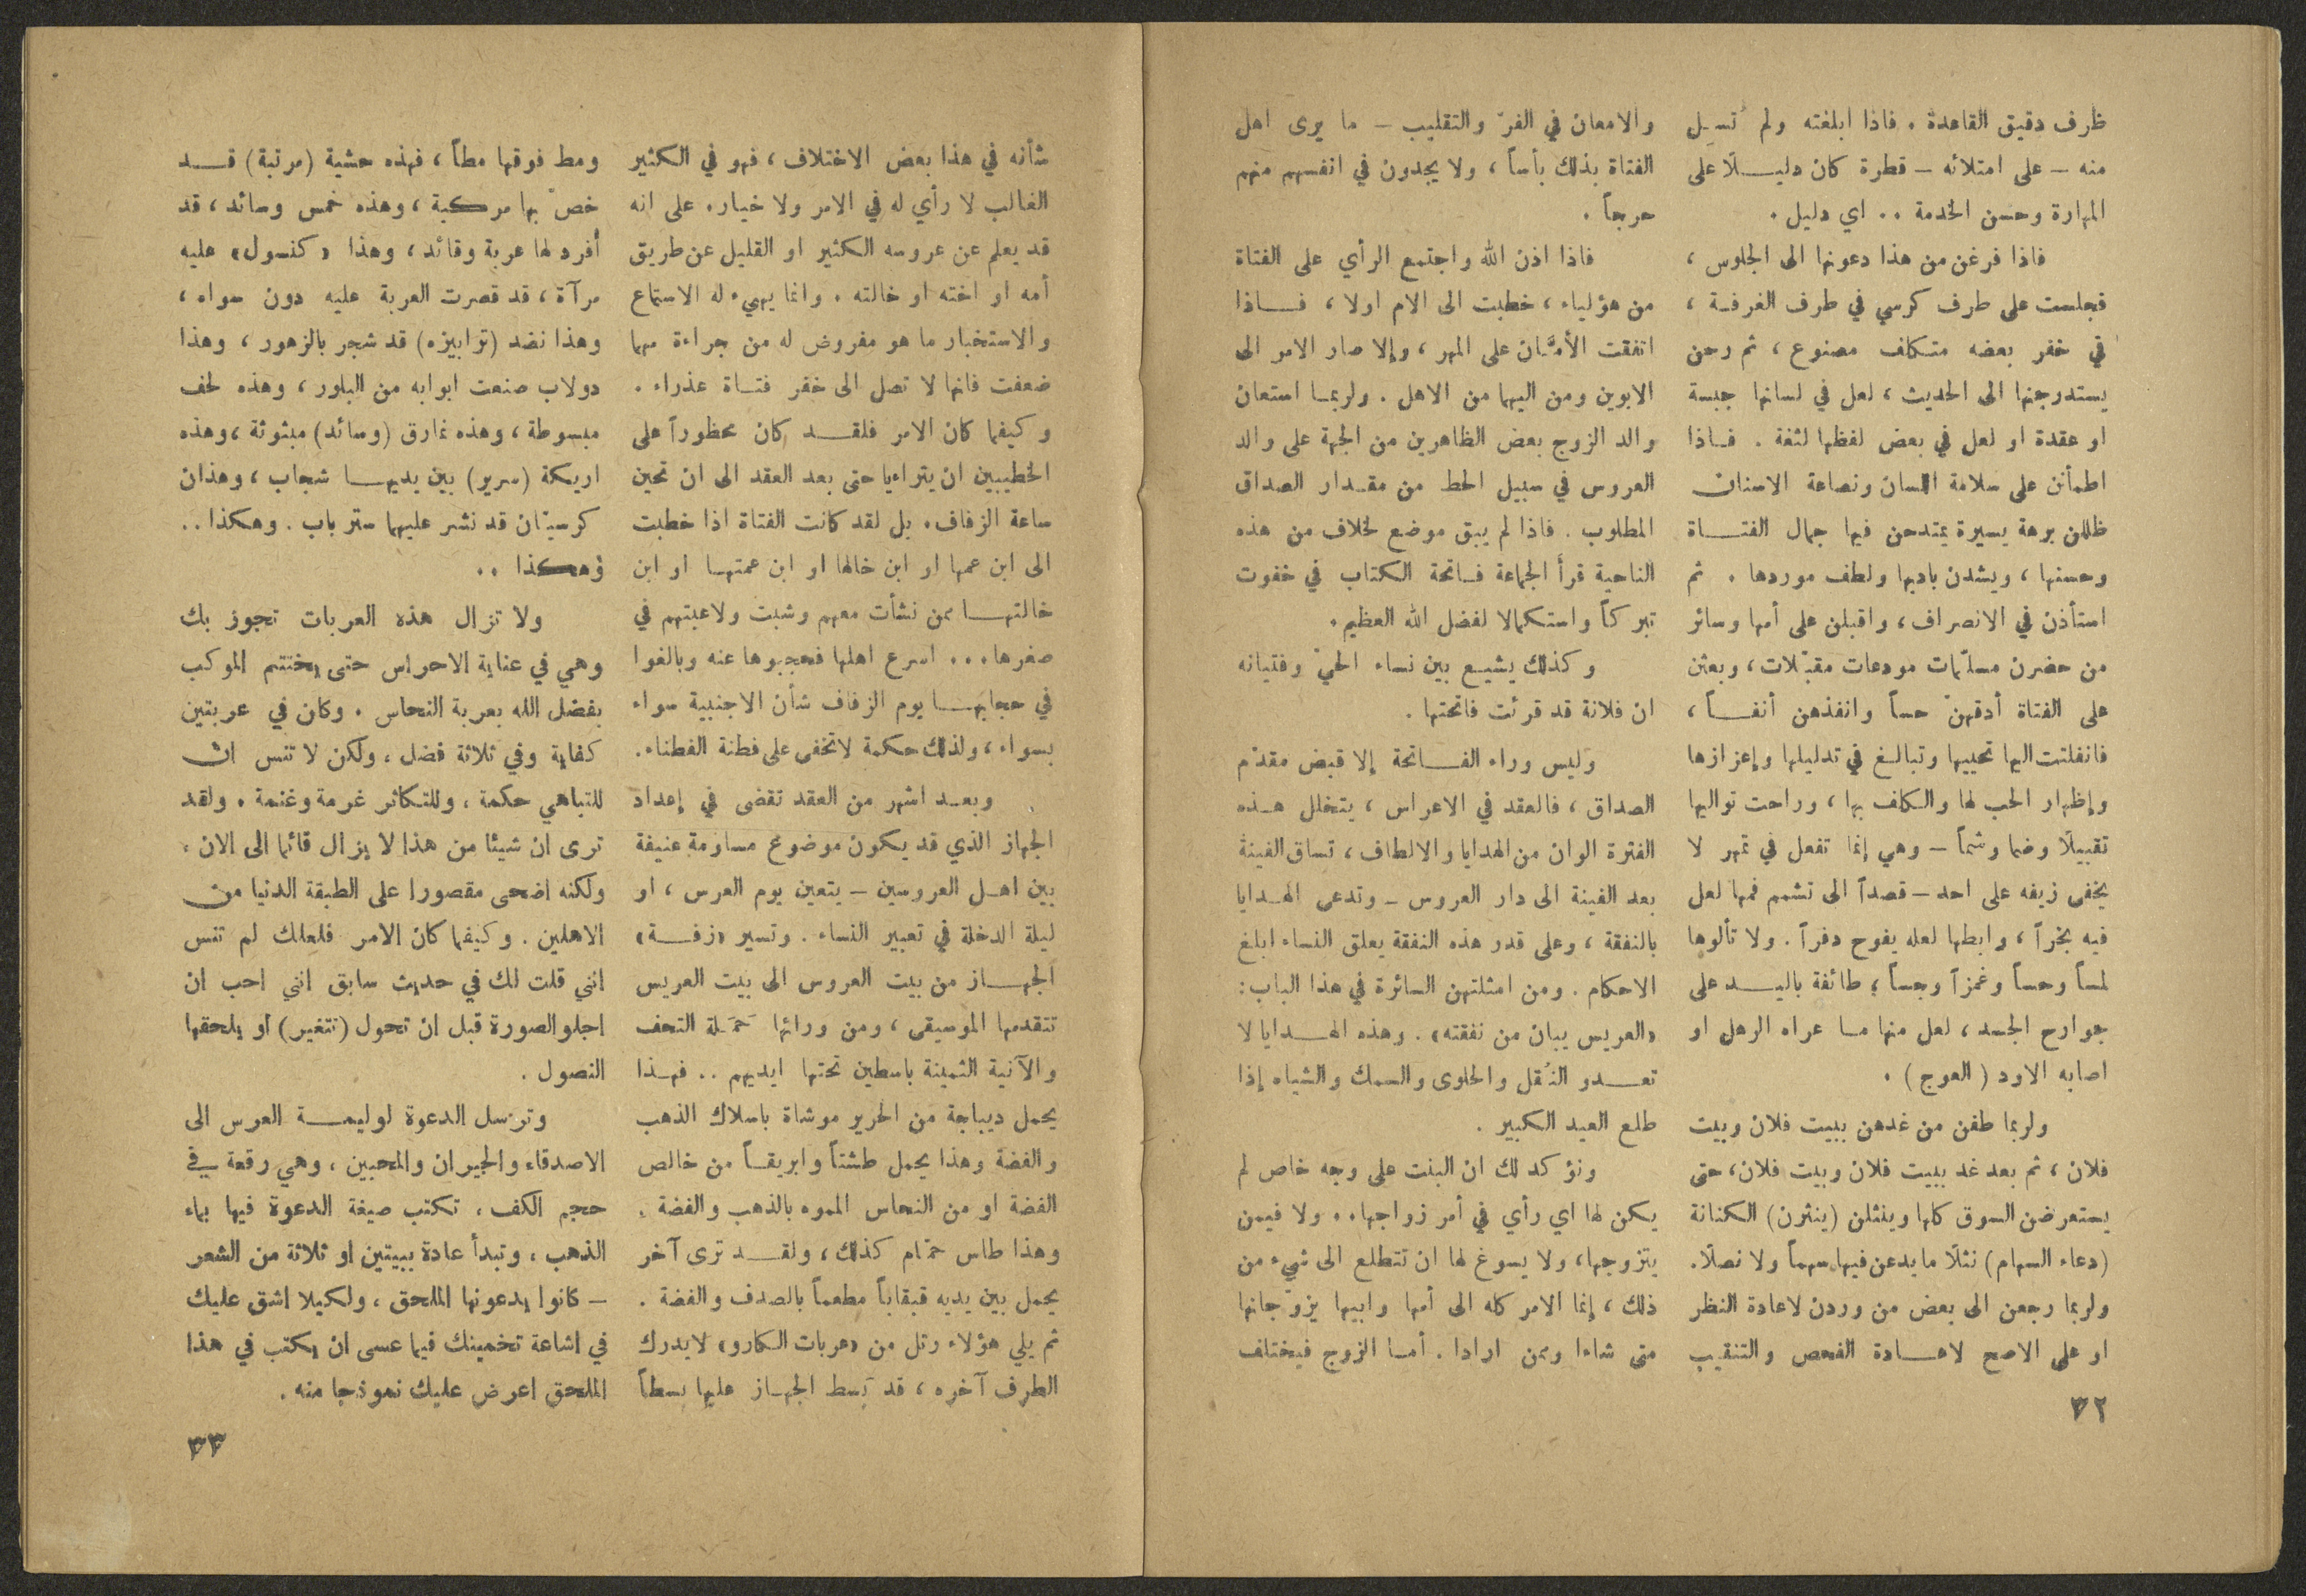 ظرف دقيق القاعدة . فاذا ابلغته ولم تُسِل
منه - على امتلائه - قطرة كان دليـــلًا على
المهارة وحسن الخدمة .. اي دليل .
فاذا فرغن من هذا دعونها الى الجلوس ،
فجلست على طرف كرسي في طرف الغرفة ،
في خفر بعضه متكلف مصنوع ، ثم رحن
يستدرجنها الى الحديث ، لعل في لسانها حبسة
او عقدة او لعل في بعض لفظها لثغة . فاذا
اطمأنن على سلامة اللسان ونصاعة الاسنان
ظللن برهة يسيرة يمتدحن فيها جمال الفتـــاة
وحسنها ، ويشدن بادبها ولطف موردها . ثم
استأذن في الانصراف ، واقبلن على أمها وسائر
من حضرن مسلّمات مودعات مقبّلات ، وبعثن
على الفتاة أدقهنّ حساً وانفذهن أنفـــاً ،
فانفلتت اليها تحييها وتبالغ في تدليلها وإعزازها
وإظهار الحب لها والكلف بها ، وراحت تواليها
تقبيلًا وضما وشماً - وهي إنما تفعل في تمهر لا
يخفى زيفه على احد - قصداً الى تشمم فمها لعل
فيه بخراً ، وابطها لعله يفوح دفراً . ولا تألوها
لمساً وحساً وغمزاً وجساً ، طائفة باليـــد على
جوارح الجسد ، لعل منها مـا عراه الرهل او
اصابه الاود ( العوج ) .
ولربما طفن من غدهن ببيت فلان وبيت
فلان ، ثم بعد غد ببيت فلان وبيت فلان، حتى
يستعرضن السوق كلها وينثلن (ينثرن) الكنانة
(دعاء السهام) نثلًا ما يدعن فيها سهماً ولا نصلًا.
ولربما رجعن الى بعض من وردن لاعادة النظر
او على الاصح لاعـــادة الفحص والتنقيب
٣٢
والامعان في الفرّ والتقليب - ما يرى اهل
الفتاة بذلك بأساً ، ولا يجدون في انفسهم منهم
حرجاً .
فاذا اذن الله واجتمع الرأي على الفتاة
من هؤلياء ، خطبت الى الام اولا ، فـــاذا
اتفقت الأمّان على المهر ، وإلا صار الامر الى
الابوين ومن اليهما من الاهل . ولربمـا استعان
والد الزوج بعض الظاهرين من الجهة على والد
العروس في سبيل الحط من مقـدار الصداق
المطلوب . فاذا لم يبق موضع لخلاف من هذه
الناحية قرأ الجماعة فـاتحة الكتاب في خفوت
تبركاً واستكمالا لفضل الله العظيم .
وكذلك يشيـع بين نساء الحيّ وفتيانه
ان فلانة قد قرئت فاتحتها .
وليس وراء الفـــاتحة إلا قبض مقدّم
الصداق ، فالعقد في الاعراس ، يتخلل هـذه
الفترة الوان من الهدايا والالطاف ، تساق الفينة
بعد الفينة الى دار العروس - وتدعى الهـدايا
بالنفقة ، وعلى قدر هذه النفقة يعلق النساء ابلغ
الاحكام . ومن امثلتهن السائرة في هذا الباب:
«العريس يبان من نفقته» . وهذه الهـــدايا لا
تعـــدو النُقل والحلوى والسمك والشياه إذا
طلع العيد الكبير .
ونؤكد لك ان البنت على وجه خاص لم
يكن لها اي رأي في أمر زواجها .. ولا فيمن
يتزوجها، ولا يسوغ لها ان تتطلع الى شيء من
ذلك ، إنما الامر كله الى أمها وابيها يزوّجانها
متى شاءا وممن ارادا . أمـا الزوج فيختلف
شأنه في هذا بعض الاختلاف ، فهو في الكثير
الغالب لا رأي له في الامر ولا خيار. على انه
قد يعلم عن عروسه الكثير او القليل عن طريق
أمه او اخته او خالته . وانما يهيء له الاستماع
والاستخبار ما هو مفروض له من جراءة مهما
ضعفت فانها لا تصل الى خفر فتـاة عذراء .
وكيفما كان الامر فلقـــد كان محظوراً على
الخطيبين ان يتراءيا حتى بعد العقد الى ان تحين
ساعة الزفاف. بل لقد كانت الفتاة اذا خطبت
الى ابن عمها او ابن خالها او ابن عمتهـا او ابن
خالتهـــا ممن نشأت معهم وشبت ولاعبتهم في
صغرها... اسرع اهلها فحجبوها عنه وبالغوا
في حجابهـــا يوم الزفاف شأن الاجنبية سواء
بسواء ، ولذلك حكمة لا تخفى على فطنة الفطناء.
وبعـد اشهر من العقد تقضى في إعداد
الجهاز الذي قد يكون موضوع مساومة عنيفة
بين اهـل العروسين - يتعين يوم العرس ، او
ليلة الدخلة في تعبير النساء . وتسير «زفـــة»
الجهـــاز من بيت العروس الى بيت العريس
تتقدمها الموسيقى ، ومن ورائها حَمَلة التحف
والآنية الثمينة باسطين تحتها ايديهم .. فهـذا
يحمل ديباجة من الحرير موشاة باسلاك الذهب
والفضة وهذا يحمل طشتاً وابريقـــاً من خالص
الفضة او من النحاس المموه بالذهب والفضة .
وهذا طاس حمّام كذلك ، ولقـــد ترى آخر
يحمل بين يديه قبقاباً مطعماً بالصدف والفضة .
ثم يلي هؤلاء رتل من «عربات الكارو» لا يدرك
الطرف آخره ، قد بَسط الجهـاز عليها بسطاً
ومط فوقها مطاً ، فهذه حشية (مرتبة) قـــد
خصّ بها مركبة ، وهذه خمس وسائد ، قد
أفرد لها عربة وقائد ، وهذا «كنسول» عليه
مرآة ، قد قصرت العربة عليه دون سواه ،
وهذا نضد (ترابيزه) قد شجر بالزهور ، وهذا
دولاب صنعت ابوابه من البلور ، وهذه لحف
مبسوطة ، وهذه نمارق (وسائد) مبثوثة ، وهذه
اريكة (سرير) بين يديهـــا شجاب ، وهذان
كرسيّان قد نشر عليهما ستر باب . وهكذا ..
وهكذا ..
ولا تزال هذه العربات تجوز بك
وهي في عناية الاحراس حتى يختتم الموكب
بفضل الله بعربة النحاس . وكان في عربتين
كفاية وفي ثلاثة فضل ، ولكن لا تنس ان
للتباهي حكمة ، وللتكاثر غرمة وغنمة . ولقد
ترى ان شيئا من هذا لا يزال قائما الى الان .
ولكنه اضحى مقصورا على الطبقة الدنيا من
الاهلين . وكيفما كان الامر فلعلك لم تنس
انني قلت لك في حديث سابق انني احب ان
اجلو الصورة قبل ان تحول (تتغير) او يلحقها
النصول .
وترسل الدعوة لوليمـــة العرس الى
الاصدقاء والجيران والمحبين ، وهي رقعة في
حجم الكف ، تكتب صيغة الدعوة فيها بماء
الذهب ، وتبدأ عادة ببيتين او ثلاثة من الشعر
- كانوا يدعونها الملحق ، ولكيلا اشق عليك
في اشاعة تخمينك فيما عسى ان يكتب في هذا
الملحق اعرض عليك نموذجا منه .
٣٣